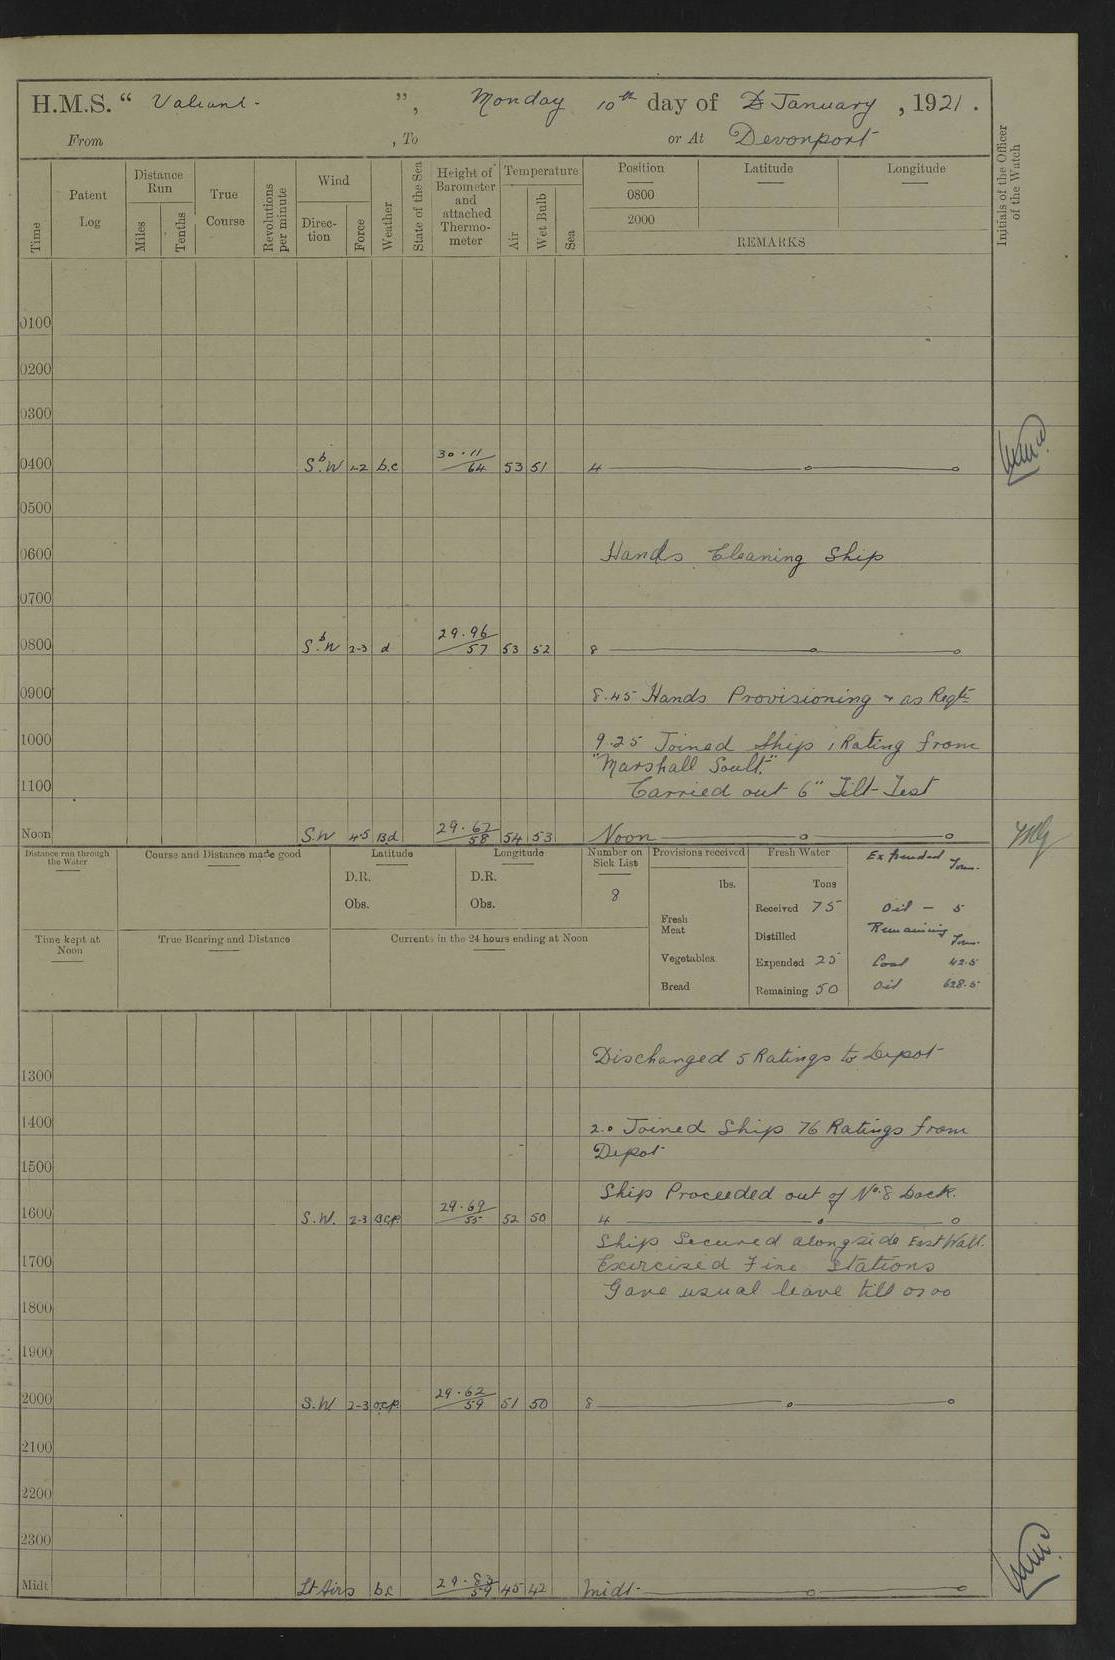 H.M.S. " Valiant - ", Monday 10th day of January, 1921.
From , To or At Devonport
Time
Patent Log
Distance Run
Miles
Tenths
True Course
Revolutions per minute
Wind
Direction
Force
Weather
State of the Sea
Height of Barometer and attached Thermo-meter
Temperature
Air
Wet Bulb
Sea
Position Latitude Longitude
0800
2000
REMARKS
Initials of the Officer of the Watch
0100
0200
0300
0400 SbW 1-2 b.c 30.11/64 53 51 4
0500
0600 Hands Cleaning Ship
0700
0800 SbW 2-3 d 29.96/57 53 52 8
0900 8.45 Hands Provisioning & as Reqte
1000 9.25 Joined Ship 1 Rating from
"Marshall Soult."
1100 Carried out 6" Tilt-Test
Noon S.W 4-5 B.d 29.62/58 54 53 Noon
Distance run through the Water
Course and Distance made good
Latitude
D.R.
Obs.
Longitude
D.R.
Obs.
Number on Sick List
8
Provisions received
lbs.
Fresh Meat
Vegetables
Bread
Fresh Water
Tons
Received 75
Distilled
Expended 25
Remaining 50
Expended Tons.
Oil - 5
Remaining Tons.
Coal 42.5
Oil 628.5
Time kept at Noon
True Bearing and Distance
Currents in the 24 hours ending at Noon
Discharged 5 Ratings to Depot
1300
1400 2.0 Joined Ship 76 Ratings from
Depot
1500
Ship Proceeded out of No. 8 Dock.
1600 S.W. 2-3 B.C.P. 29.69/55 52 50 4
Ship Secured alongside East Wall.
1700 Exercised Fire Stations
Gave usual leave till 0700
1800
1900
2000 S.W. 2-3 o.c.p. 29.62/59 51 50 8
2100
2200
2300
Midt Lt Airs b.c 29.83/59 45 42 Midt.